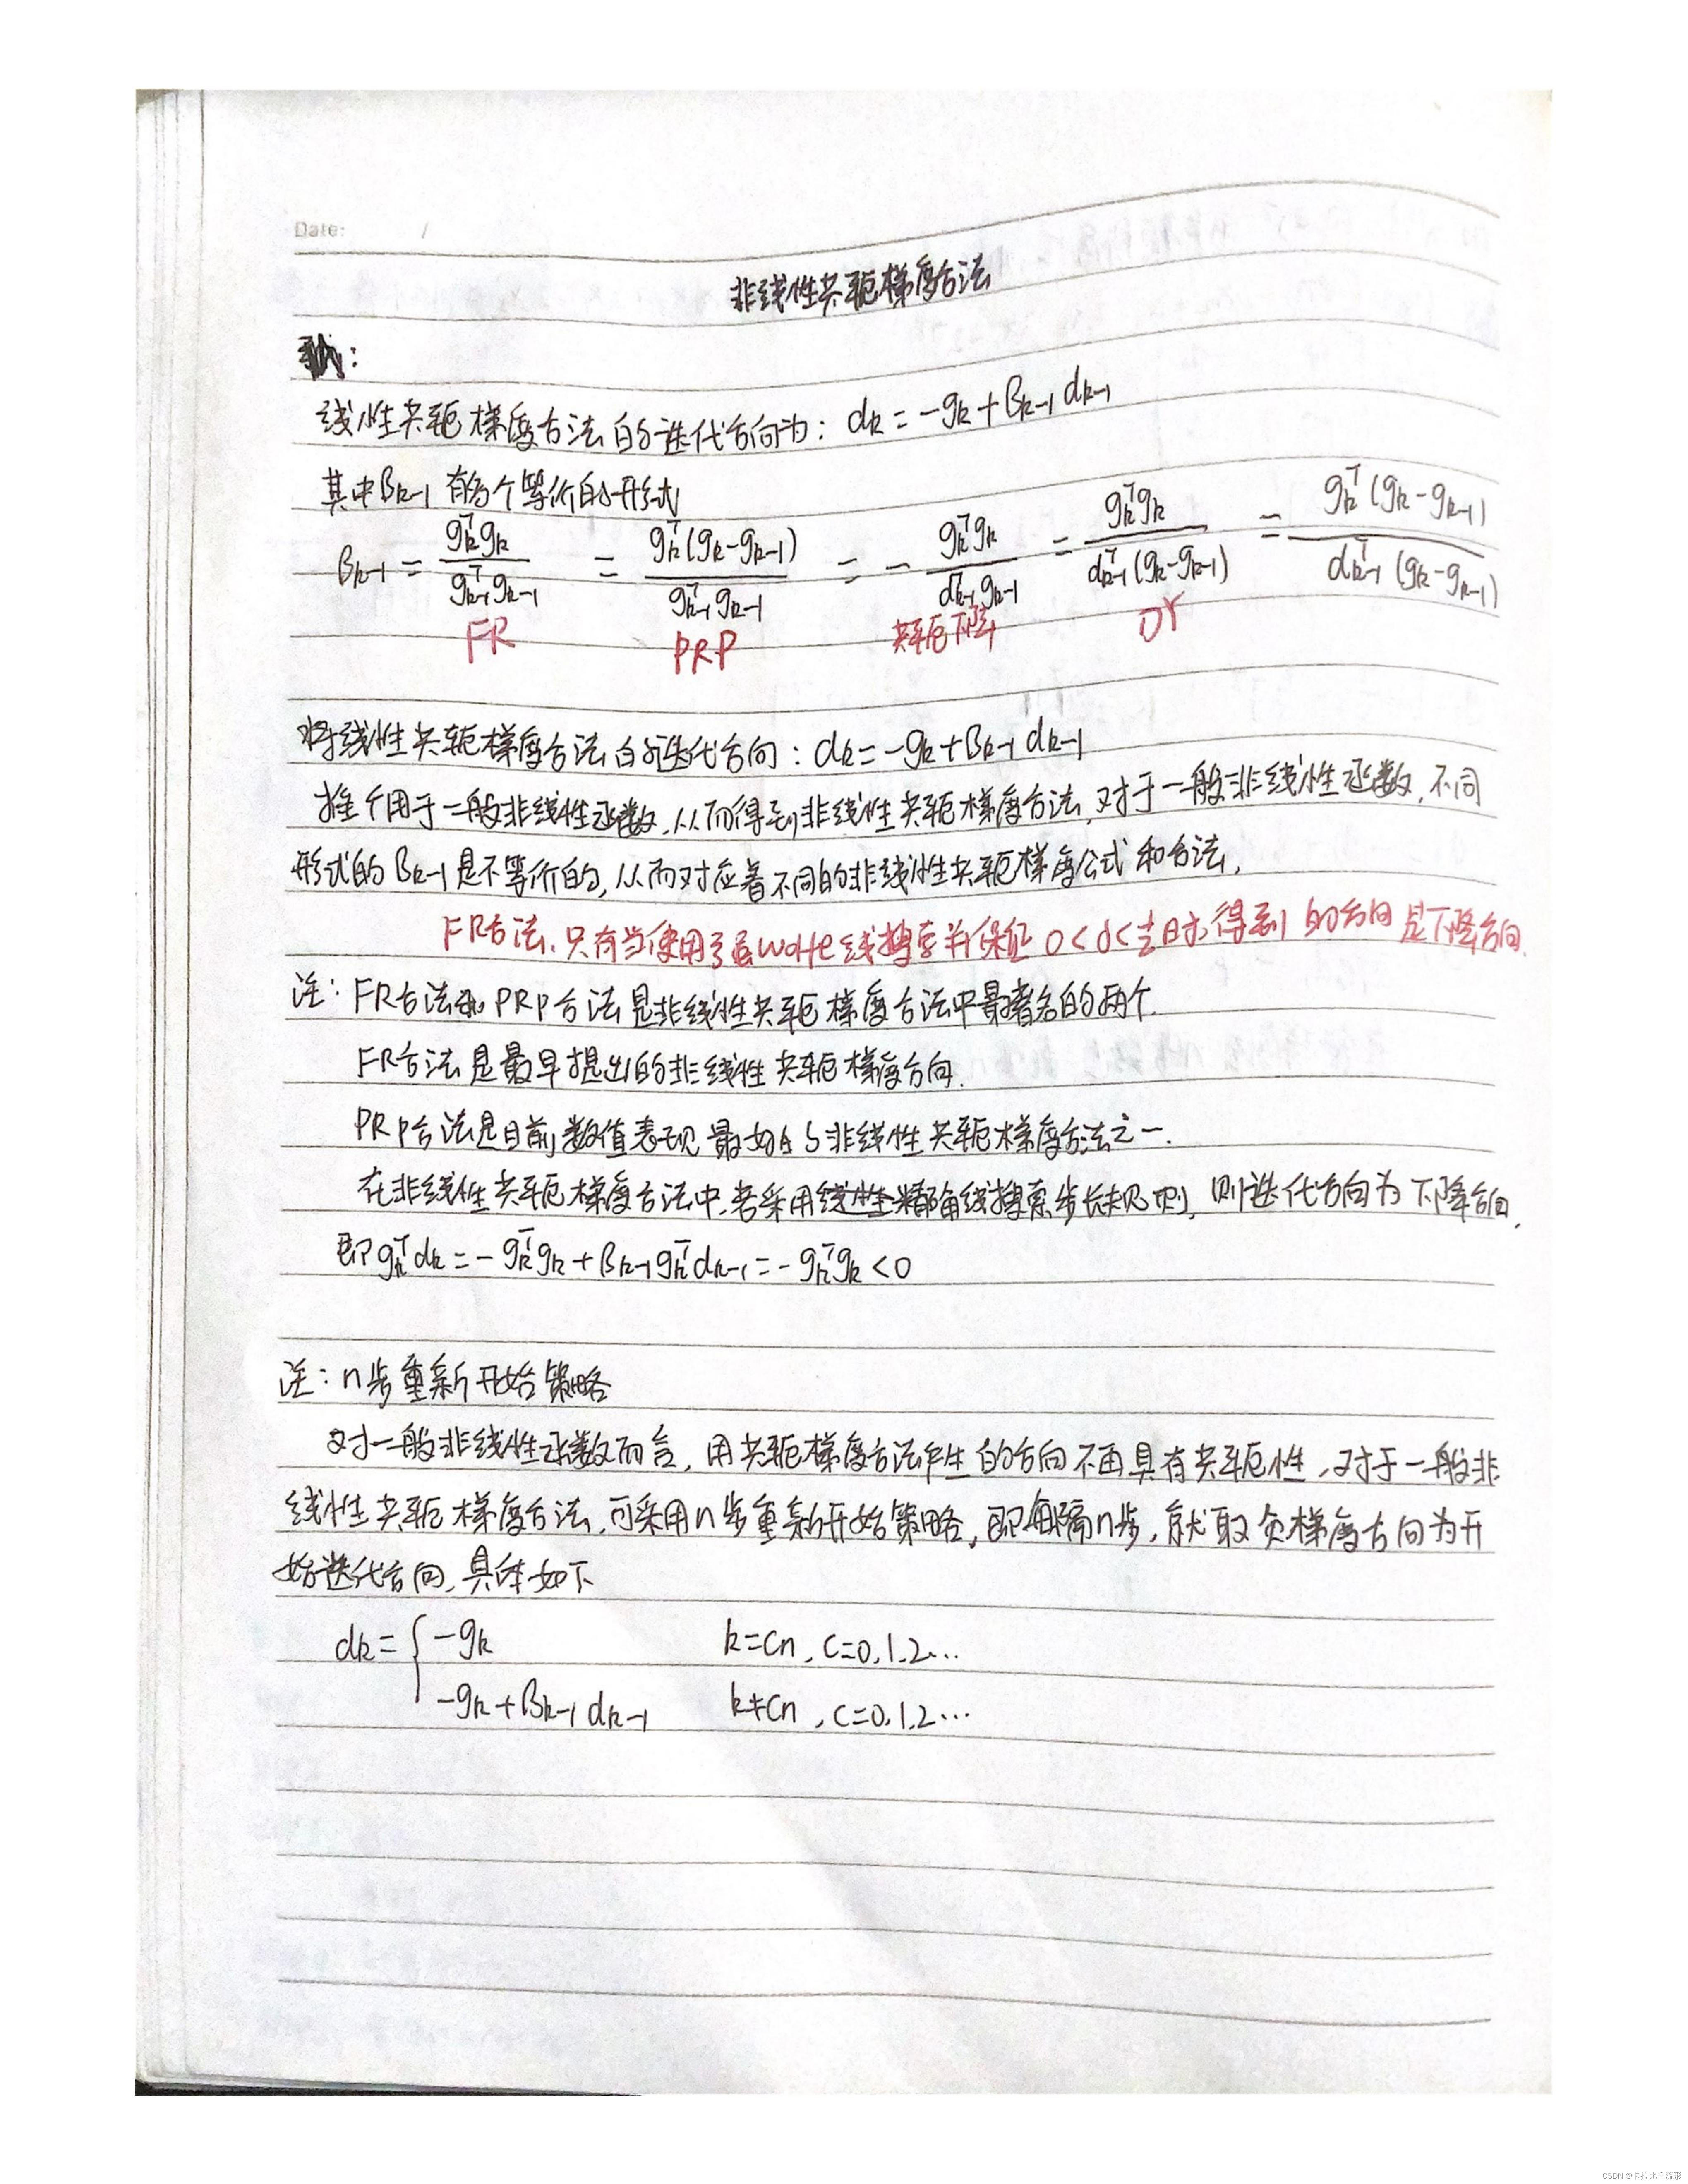 Date: /
非线性共轭梯度方法
:
线性共轭梯度方法的迭代方向为: dk = -gk + βk-1 dk-1
其中βk-1 有多个等价的形式
βk-1 = gkᵀgk / gk-1ᵀgk-1 = gkᵀ(gk-gk-1) / gk-1ᵀgk-1 = - gkᵀgk / dk-1ᵀgk-1 = gkᵀgk / dk-1ᵀ(gk-gk-1) = gkᵀ(gk-gk-1) / dk-1ᵀ(gk-gk-1)
FR PRP 共轭下降 DY
将线性共轭梯度方法的迭代方向: dk = -gk + βk-1 dk-1
推广用于一般非线性函数,从而得到非线性共轭梯度方法,对于一般非线性函数,不同
形式的βk-1是不等价的,从而对应着不同的非线性共轭梯度公式和方法,
FR方法,只有当使用了强wolfe线搜索并保证 0<σ<½时,得到的方向是下降方向.
注: FR方法和PRP方法是非线性共轭梯度方法中最著名的两个.
FR方法是最早提出的非线性共轭梯度方向.
PRP方法是目前数值表现最好的非线性共轭梯度方法之一.
在非线性共轭梯度方法中,若采用精确线搜索步长规则,则迭代方向为下降方向,
即gkᵀdk = -gkᵀgk + βk-1gkᵀdk-1 = -gkᵀgk < 0
注: n步重新开始策略
对一般非线性函数而言,用共轭梯度方法产生的方向不再具有共轭性,对于一般非
线性共轭梯度方法,可采用n步重新开始策略,即每隔n步,就取负梯度方向为开
始迭代方向,具体如下
dk = { -gk k=cn, c=0,1,2...
-gk+βk-1dk-1 k≠cn, c=0,1,2...
CSDN @卡拉比丘流形